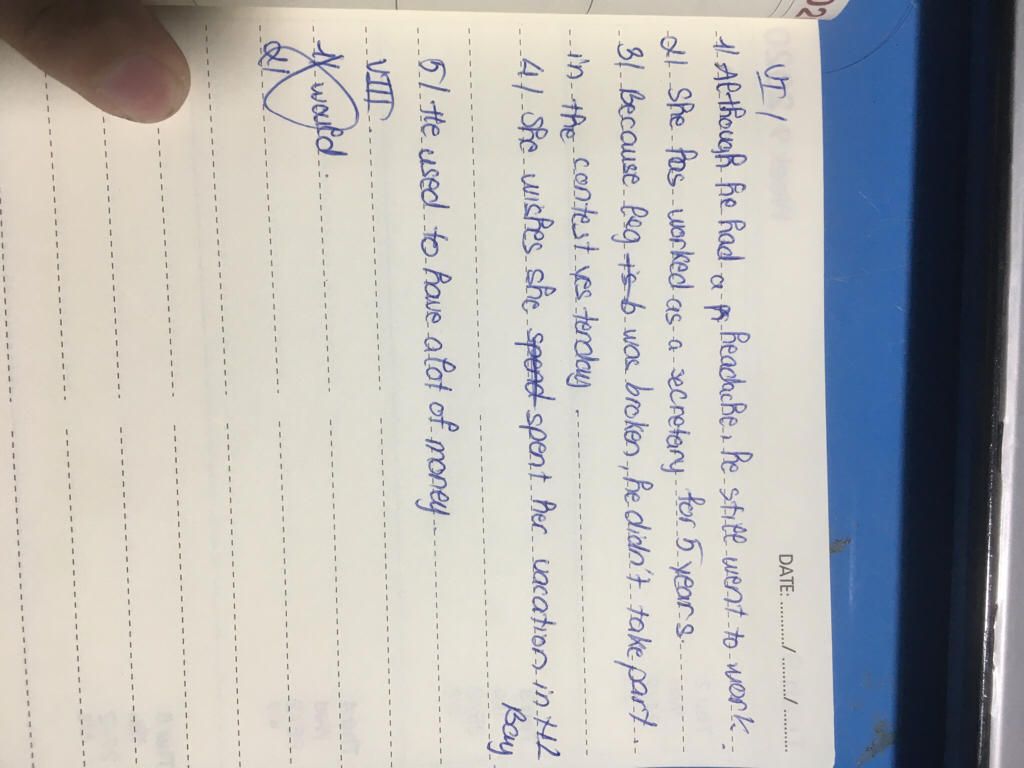 02
DATE: ........./ ........./ .........
VI/
1/ Although he had a headache, he still went to work.
2/ She has worked as a secretary for 5 years
3/ Because leg is b was broken, he didn't take part
in the contest yesterday.
4/ She wishes she spend spent her vacation in HL
Bay
5/ He used to have a lot of money
VIII
1/ would.
2/